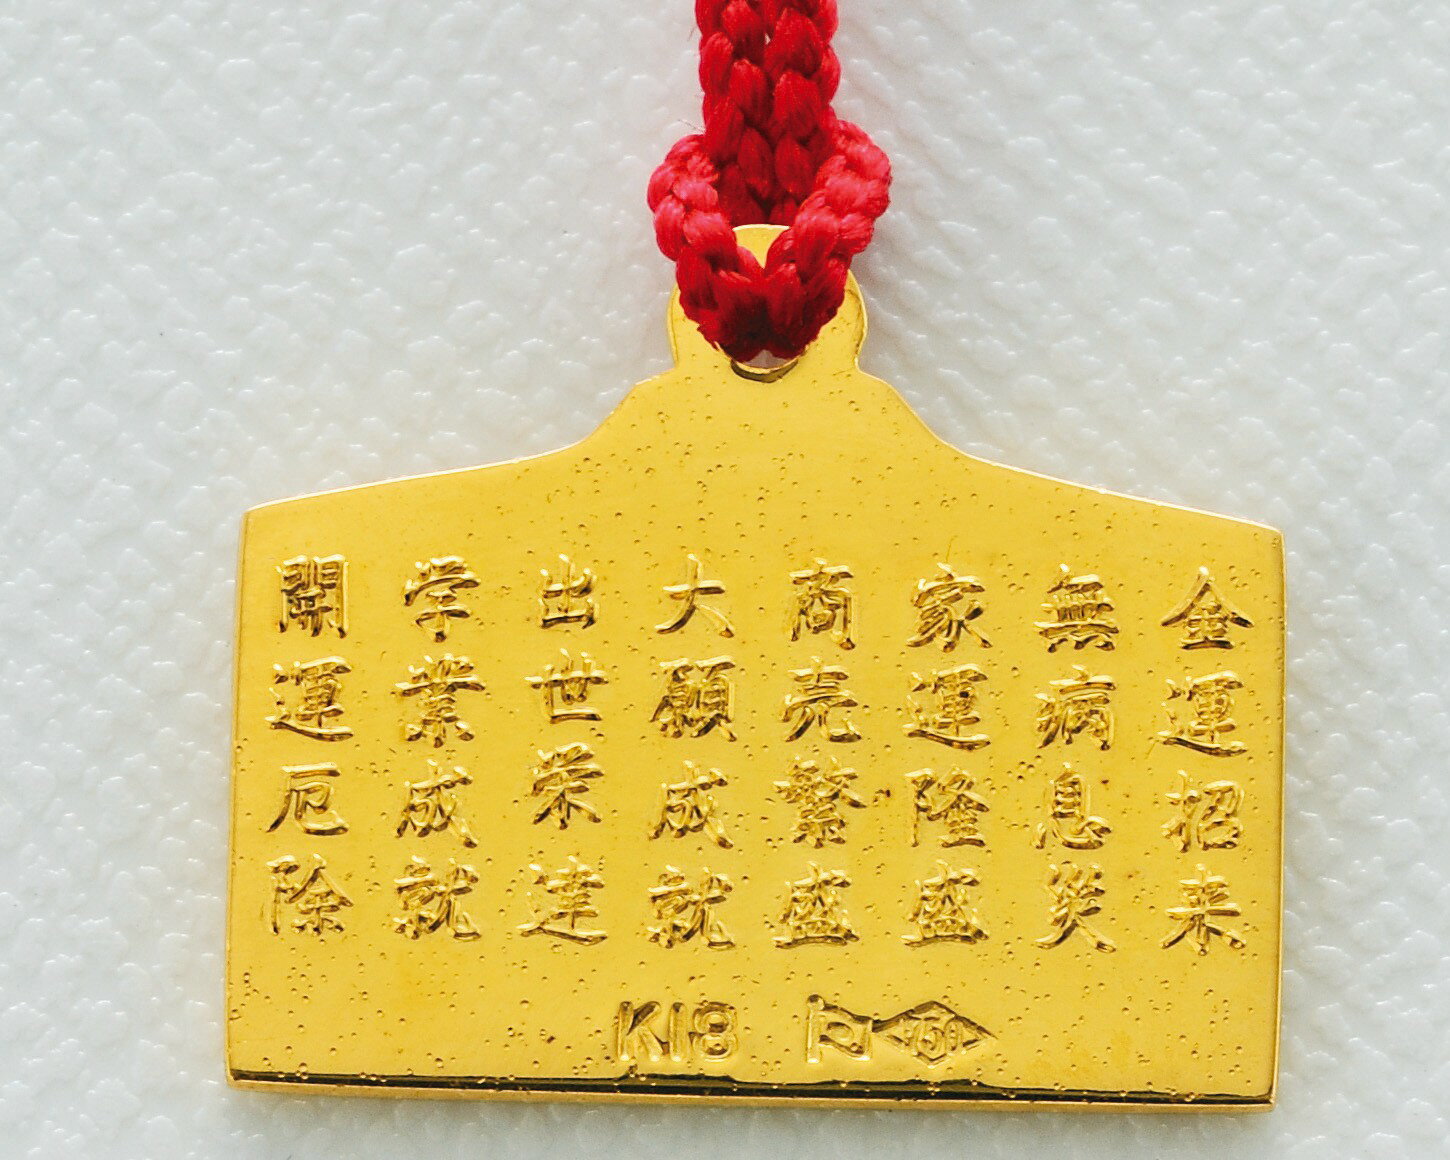 金運招来
無病息災
家運隆盛
商売繁盛
大願成就
出世栄達
学業成就
開運厄除
K18 750